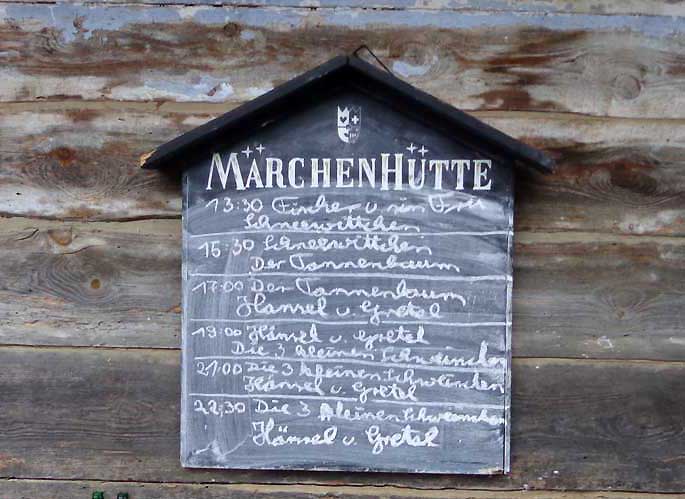 MÄRCHENHÜTTE
13:30 Fischer u. sin Fru
Schneewittchen
15:30 Schneewittchen
Der Tannenbaum
17:00 Der Tannenbaum
Hänsel u. Gretel
19:00 Hänsel u. Gretel
Die 3 kleinen Schweinchen
21:00 Die 3 kleinen Schweinchen
Hänsel u. Gretel
22:30 Die 3 kleinen Schweinchen
Hänsel u. Gretel